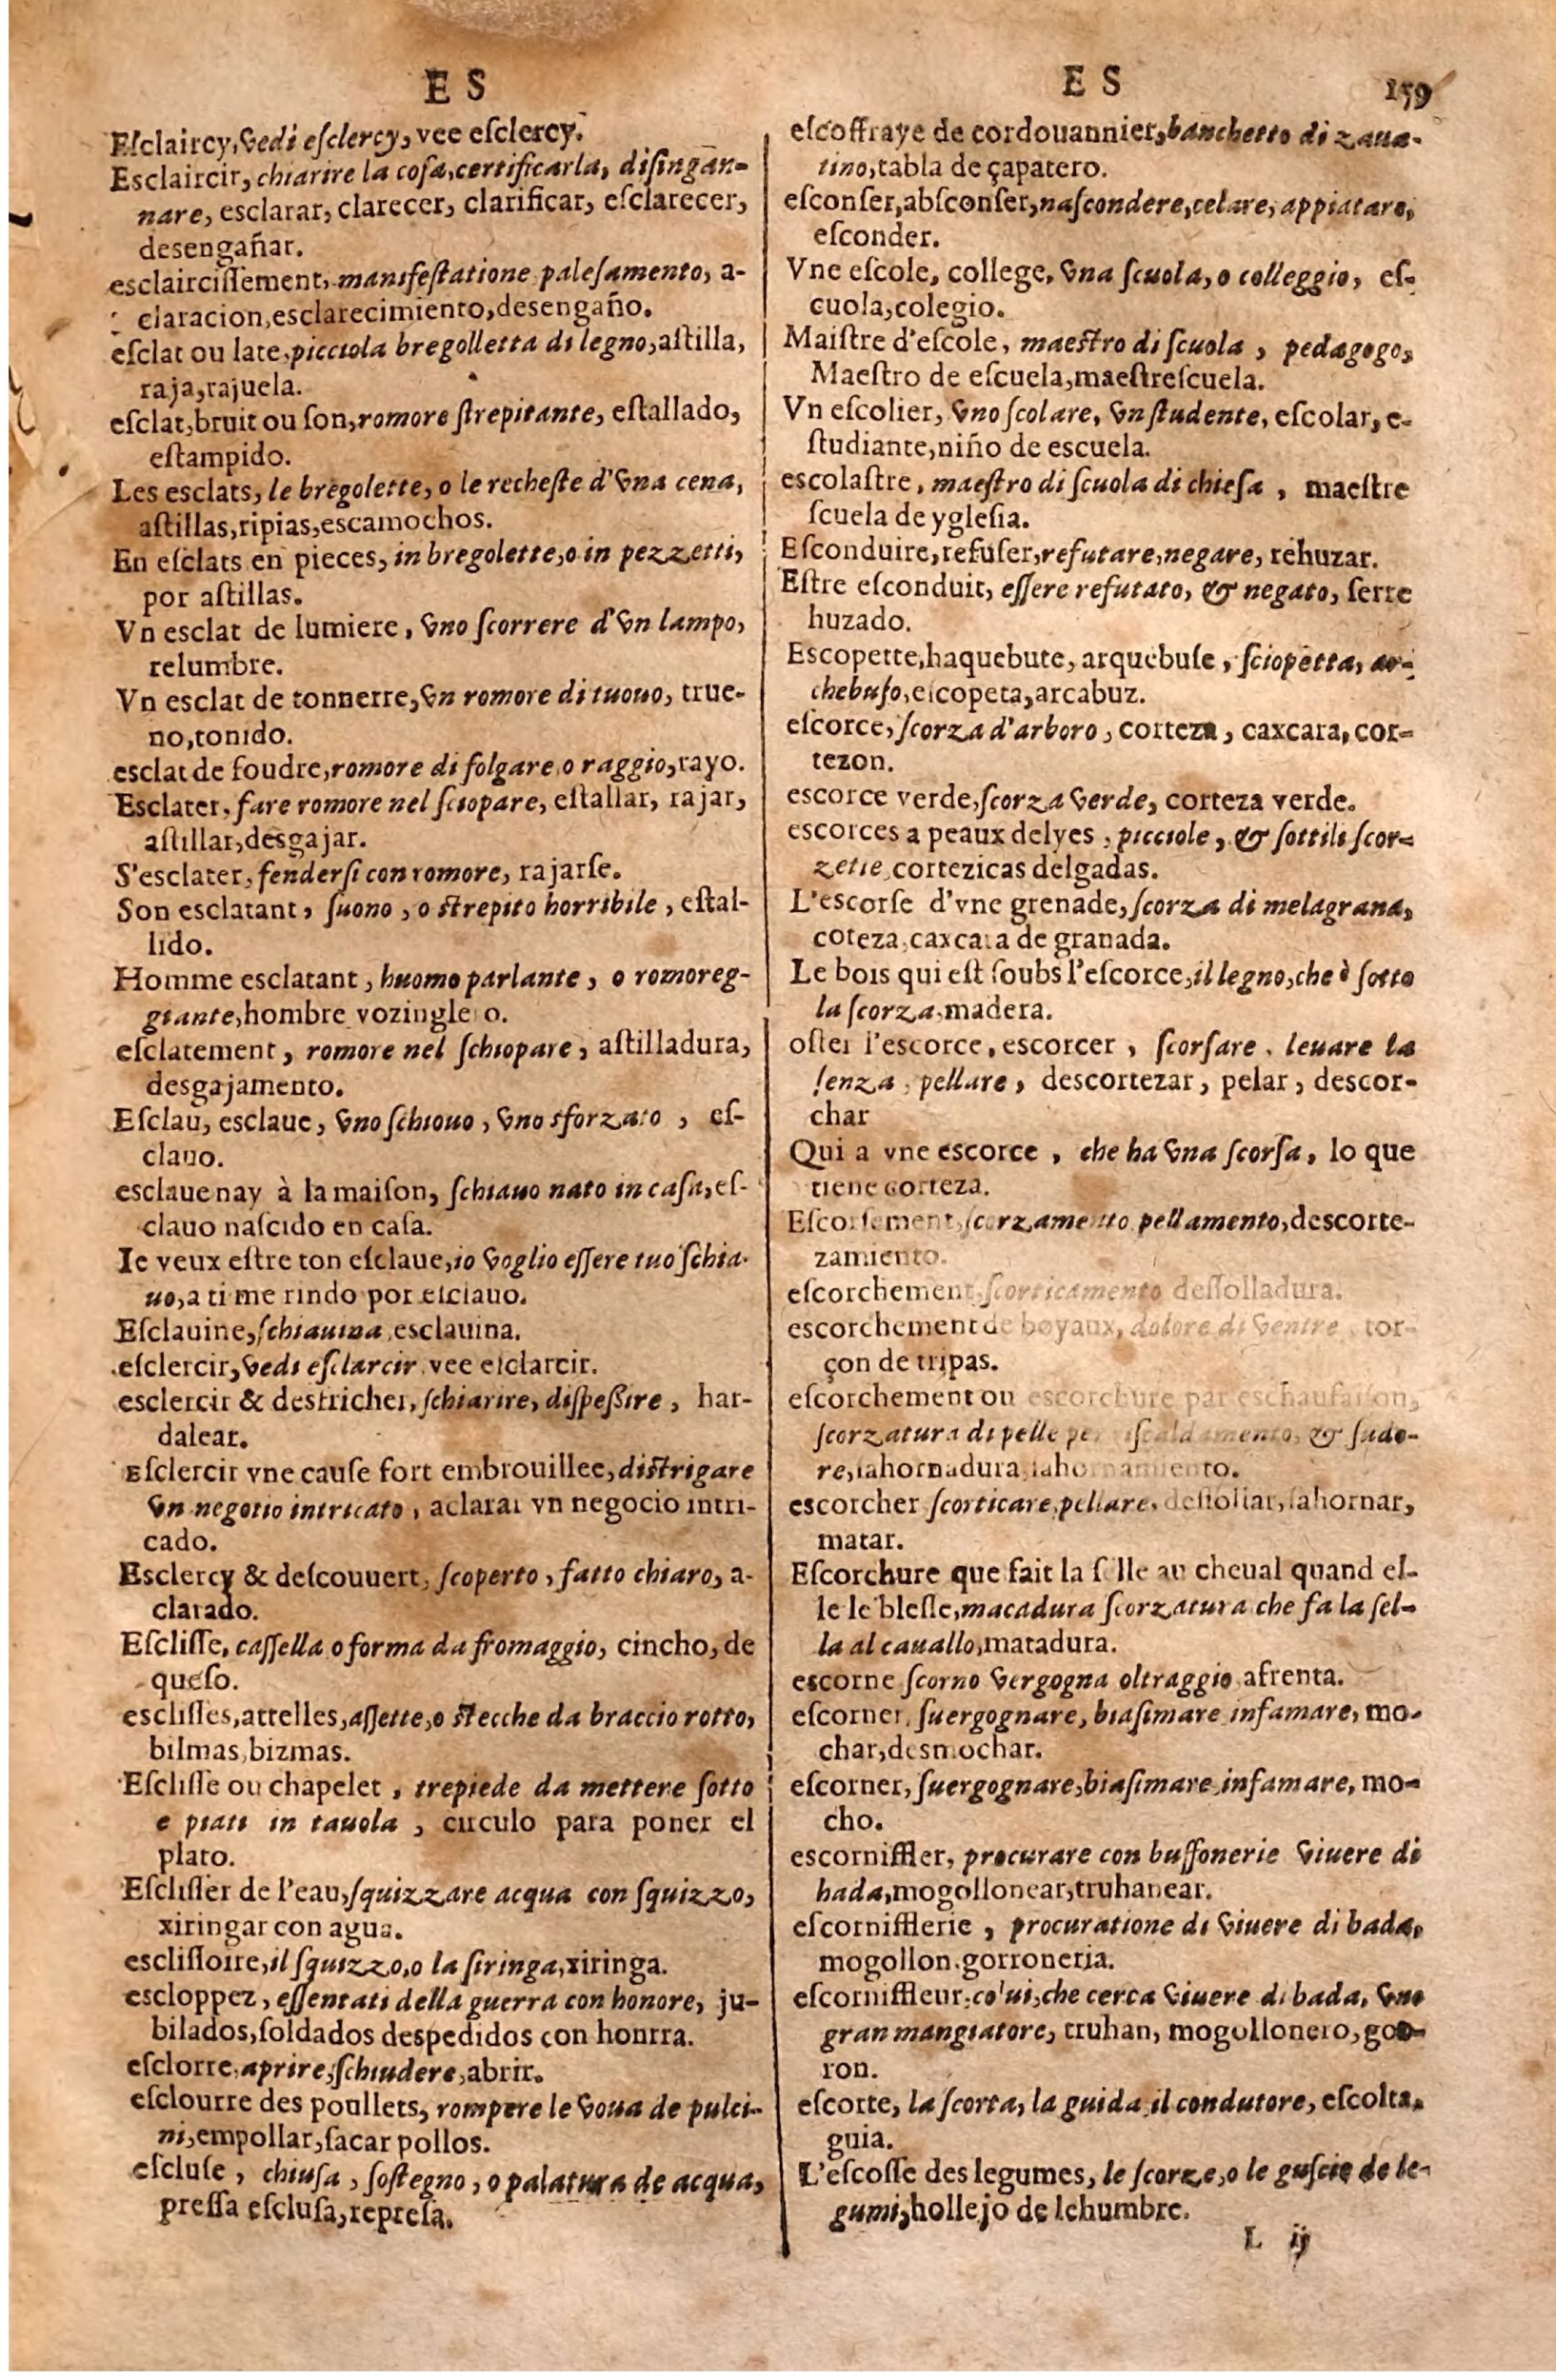 E S
Eſclaircy, vedi eſclercy, vee eſclercy.
Esclaircir, chiarire la coſa, certificarla, diſingan-
nare, esclarar, clarecer, clarificar, eſclarecer,
desengañar.
esclairciſſement, manifeſtatione paleſamento, a-
claracion, esclarecimiento, desengaño.
eſclat ou late, picciola bregolletta di legno, aſtilla,
raja, rajuela.
eſclat, bruit ou ſon, romore ſtrepitante, eſtallado,
eſtampido.
Les esclats, le bregolette, o le recheſte d'vna cena,
aſtillas, ripias, escamochos.
En eſclats en pieces, in bregolette, o in pezzetti,
por aſtillas.
Vn esclat de lumiere, vno ſcorrere d'vn lampo,
relumbre.
Vn esclat de tonnerre, vn romore di tuouo, true-
no, tonido.
esclat de foudre, romore di folgare o raggio, rayo.
Esclater, fare romore nel ſciopare, eſtallar, rajar,
aſtillar, desgajar.
S'esclater, fenderſi con romore, rajarſe.
Son esclatant, ſuono, o ſtrepito horribile, eſtal-
lido.
Homme esclatant, huomo parlante, o romoreg-
giante, hombre vozingle o.
eſclatement, romore nel ſchiopare, aſtilladura,
desgajamento.
Eſclau, esclaue, vno ſchiouo, vno sforzato, eſ-
clauo.
esclaue nay à la maiſon, ſchiauo nato in caſa, eſ-
clauo naſcido en caſa.
Ie veux eſtre ton eſclaue, io voglio eſſere tuo ſchia-
uo, a ti me rindo por eſclauo.
Eſclauine, ſchiauina, esclauina.
eſclercir, vedi eſclarcir, vee eſclarcir.
esclercir & destricher, ſchiarire, diſpeßire, har-
dalear.
Eſclercir vne cauſe fort embrouillee, diſtrigare
vn negotio intricato, aclarar vn negocio intri-
cado.
Esclercy & deſcouuert, ſcoperto, fatto chiaro, a-
clarado.
Eſcliſſe, caſſella o forma da fromaggio, cincho, de
queſo.
escliſſes, attelles, aſſette, o ſtecche da braccio rotto,
bilmas, bizmas.
Eſcliſſe ou chapelet, trepiede da mettere ſotto
e piati in tauola, circulo para poner el
plato.
Eſcliſſer de l'eau, ſquizzare acqua con ſquizzo,
xiringar con agua.
escliſſoire, il ſquizzo, o la ſiringa, xiringa.
escloppez, eſſentati della guerra con honore, ju-
bilados, ſoldados despedidos con honrra.
eſclorre, aprire, ſchiudere, abrir.
eſclourre des poullets, rompere le voua de pulci-
ni, empollar, ſacar pollos.
eſcluſe, chiuſa, ſoſtegno, o palatura de acqua,
preſſa eſcluſa, repreſa.
E S 159
eſcoffraye de cordouannier, banchetto di zaua-
tino, tabla de çapatero.
eſconſer, abſconſer, naſcondere, celare, appiatare,
eſconder.
Vne eſcole, college, vna ſcuola, o colleggio, eſ-
cuola, colegio.
Maiſtre d'eſcole, maeſtro di ſcuola, pedagogo,
Maeſtro de eſcuela, maeſtreſcuela.
Vn eſcolier, vno ſcolare, vn ſtudente, eſcolar, e-
ſtudiante, niño de escuela.
escolaſtre, maeſtro di ſcuola di chieſa, maeſtre
ſcuela de ygleſia.
Eſconduire, refuſer, refutare, negare, rehuzar.
Eſtre eſconduit, eſſere refutato, & negato, ſerre
huzado.
Escopette, haquebute, arquebuſe, ſciopetta, ar-
chebuſo, eſcopeta, arcabuz.
eſcorce, ſcorza d'arboro, corteza, caxcara, cor-
tezon.
escorce verde, ſcorza verde, corteza verde.
escorces a peaux delyes, picciole, & ſottili ſcor-
zette, cortezicas delgadas.
L'escorſe d'vne grenade, ſcorza di melagrana,
coteza, caxcara de granada.
Le bois qui eſt ſoubs l'eſcorce, il legno, che è ſotto
la ſcorza, madera.
oſter l'escorce, escorcer, ſcorſare, leuare la
ſenza, pellare, descortezar, pelar, descor-
char
Qui a vne escorce, che ha vna ſcorſa, lo que
tiene corteza.
Eſcorſement, ſcorzamento, pellamento, descorte-
zamiento.
eſcorchement, ſcorticamento deſſolladura.
escorchement de boyaux, dolore di ventre, tor-
çon de tripas.
eſcorchement ou escorchure par eschaufaiſon,
ſcorzatura di pelle per iſcaldamento, & ſudo-
re, ſahornadura, ſahornamiento.
escorcher ſcorticare, pellare, deſſollar, ſahornar,
matar.
Eſcorchure que fait la ſ lle au cheual quand el-
le le bleſſe, macadura ſcorzatura che fa la ſel-
la al cauallo, matadura.
escorne ſcorno vergogna oltraggio afrenta.
eſcorner, ſuergognare, biaſimare infamare, mo-
char, desmochar.
eſcorner, ſuergognare, biaſimare, infamare, mo-
cho.
escorniffler, procurare con buffonerie viuere di
bada, mogollonear, truhanear.
eſcornifflerie, procuratione di viuere di bada,
mogollon. gorroneria.
eſcorniffleur, colui, che cerca viuere di bada, vno
gran mangiatore, truhan, mogollonero, gor-
ron.
eſcorte, la ſcorta, la guida, il condutore, eſcolta,
guia.
L'eſcoſſe des legumes, le ſcorze, o le guſcie de le-
gumi, hollejo de lehumbre.
L ij